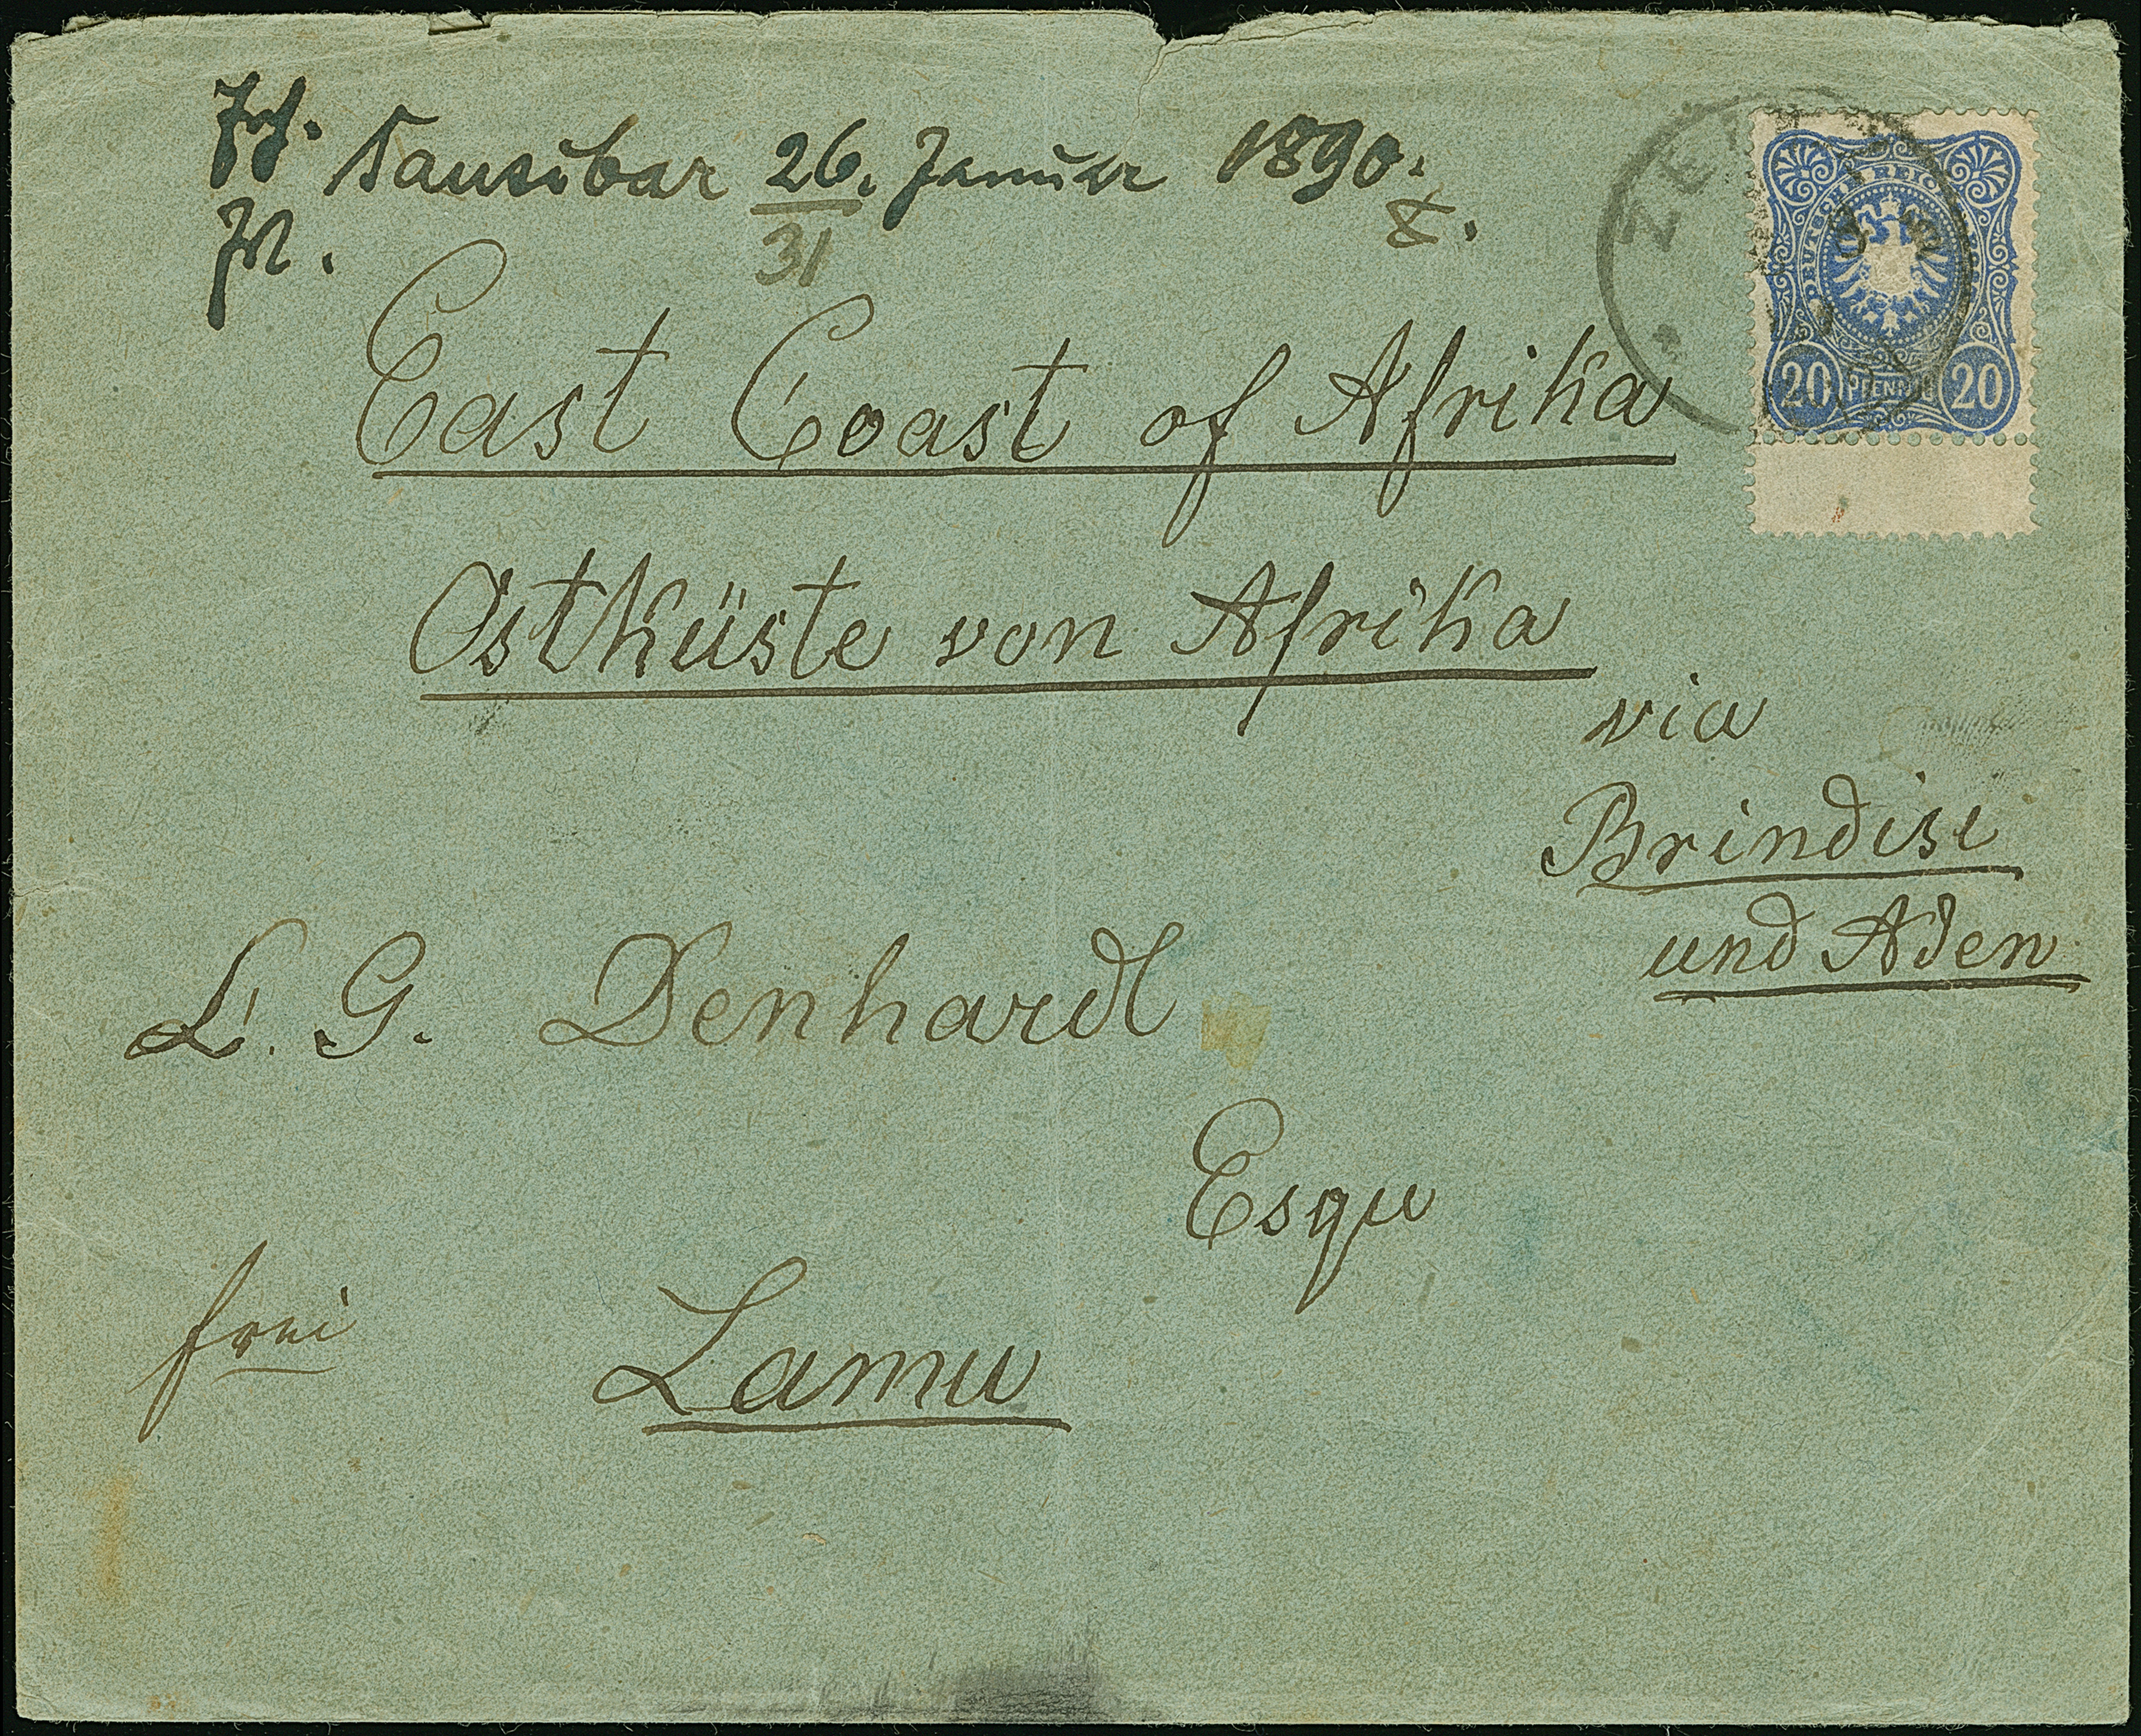 Sansibar 26. Januar 1890.
31
East Coast of Afrika
Ostküste von Afrika
via
Brindisi
und Aden
L. G. Denhardt
Esqu
frei
Lamu
DEUTSCHE REICHS
20 PFENNIG 20
ZE